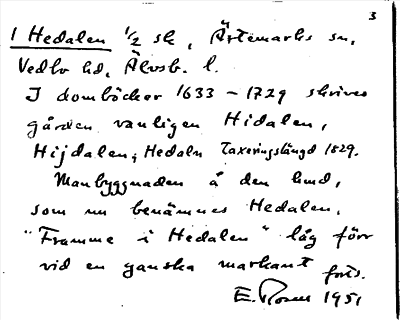 3
1 Hedalen 1/2 sk, Ärtemarks sn,
Vedbo hd, Älvsb. l.
I domböcker 1633 – 1729 skrives
gården vanligen Hidalen,
Hijdalen; Hedaln Taxeringslängd 1829.
Manbyggnaden å den hmd,
som nu benämnes Hedalen,
"Framme i Hedalen" låg förr
vid en ganska markant forts.
E. Rosen 1951